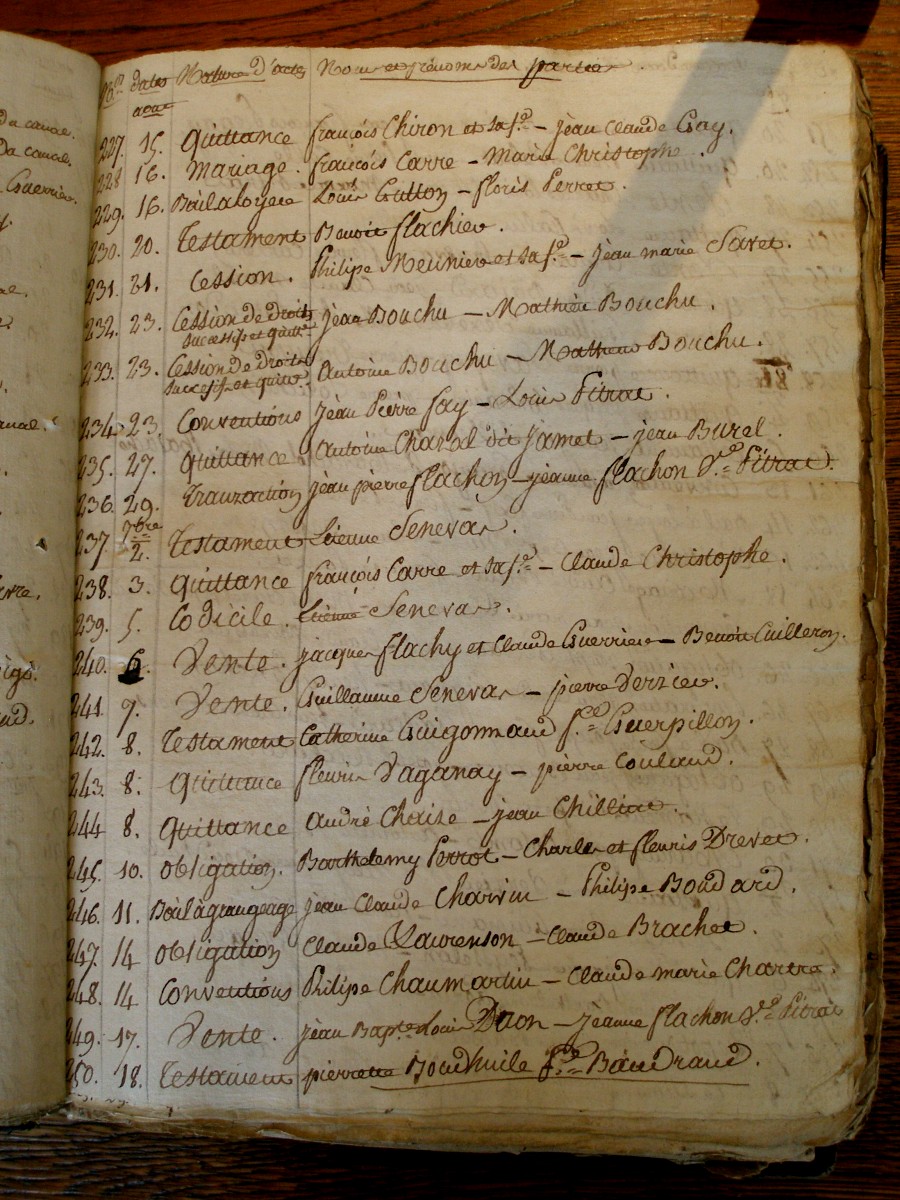 da canal.
N.ros dates Nature d'actes Noms et prénoms des parties.
aout
da canal.
227. 15. Quittance françois Chiron et sa f.e – jean Claude Gay.
Guerrier.
228 16. Mariage. françois Carre – Marie Christophe.
229. 16. Bail à loyer Louis Gutton – floris Perret.
230. 20. Testament Benoit flachier.
231. 21. Cession. Philipe Meunier et sa f.e – jean marie Savet.
232. 23. Cession de droits jean Bouchu – Mathieu Bouchu.
successifs et quitt.e
233. 23. Cession de droits Antoine Bouchu – Mathieu Bouchu.
successifs et quitt.
234. 23. Conventions jean Pierre fay – Louis Pitrat.
235. 27. Quittance Antoine Chaval dit Jamet – jean Burel.
236. 29. Tranzaction jean pierre flachon – jeanne flachon V.ve Pitrat.
7bre
237. 2. Testament Etienne Senevas.
238. 3. Quittance françois Carre et sa f.e – Claude Christophe.
239. 5. Codicile. Etienne Senevas.
240. 6. Vente. jacques flachy et Claude Guerrier – Benoit Cuilleron.
241. 7. Vente. Guillaume Senevas – pierre Verzier.
242. 8. Testament Catherine Guigonnaud f.e Guerpillon.
243. 8. Quittance fleurie Daganay – pierre Coulaud.
244 8. Quittance André Chaize – jean Chilliat.
245. 10. Obligation. Barthelemy Perrot – Charles et fleuris Drevet.
246. 11. Bail à grangeage jean Claude Charvin – Philipe Boudard.
247. 14 Obligation Claude Laurenson – Claude Brachet.
248. 14. Conventions Philipe Chaumartin – Claude marie Chartre.
249. 17. Vente. jean Bapt.e Louis Daon – jeanne flachon V.ve Pitrat
250. 18. Testament pierrette Bond'huile f.e Baudrand.